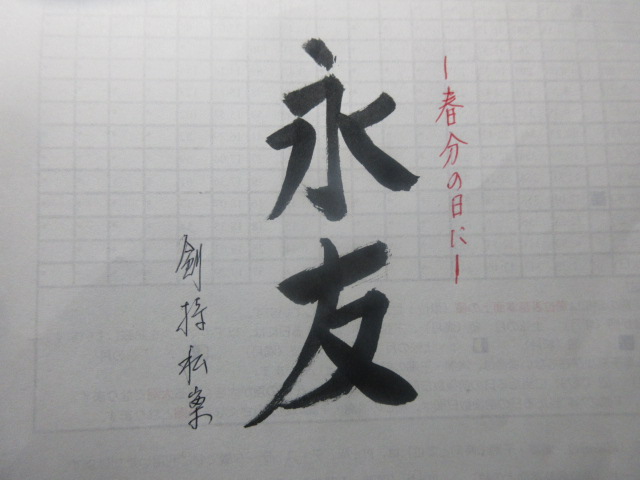 ー春分の日にー
永友
剣持松